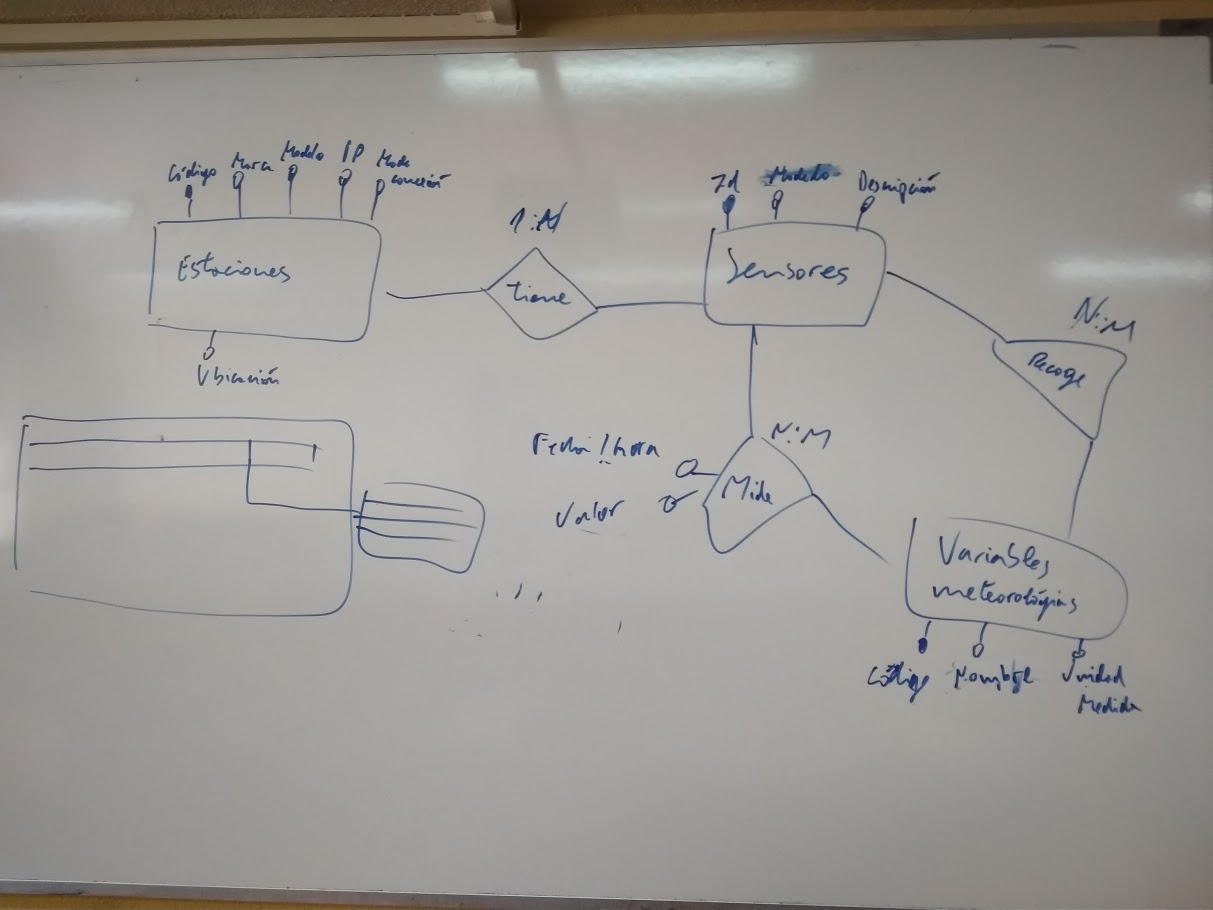 Código
Marca
Modelo
IP
Modo
conexión
Estaciones
Ubicación
1:N
tiene
Id
Modelo
Descripción
Sensores
N:M
Recoge
N:M
Fecha/hora
Valor
Mide
Variables
meteorológias
Código
Nombre
Unidad
Medida